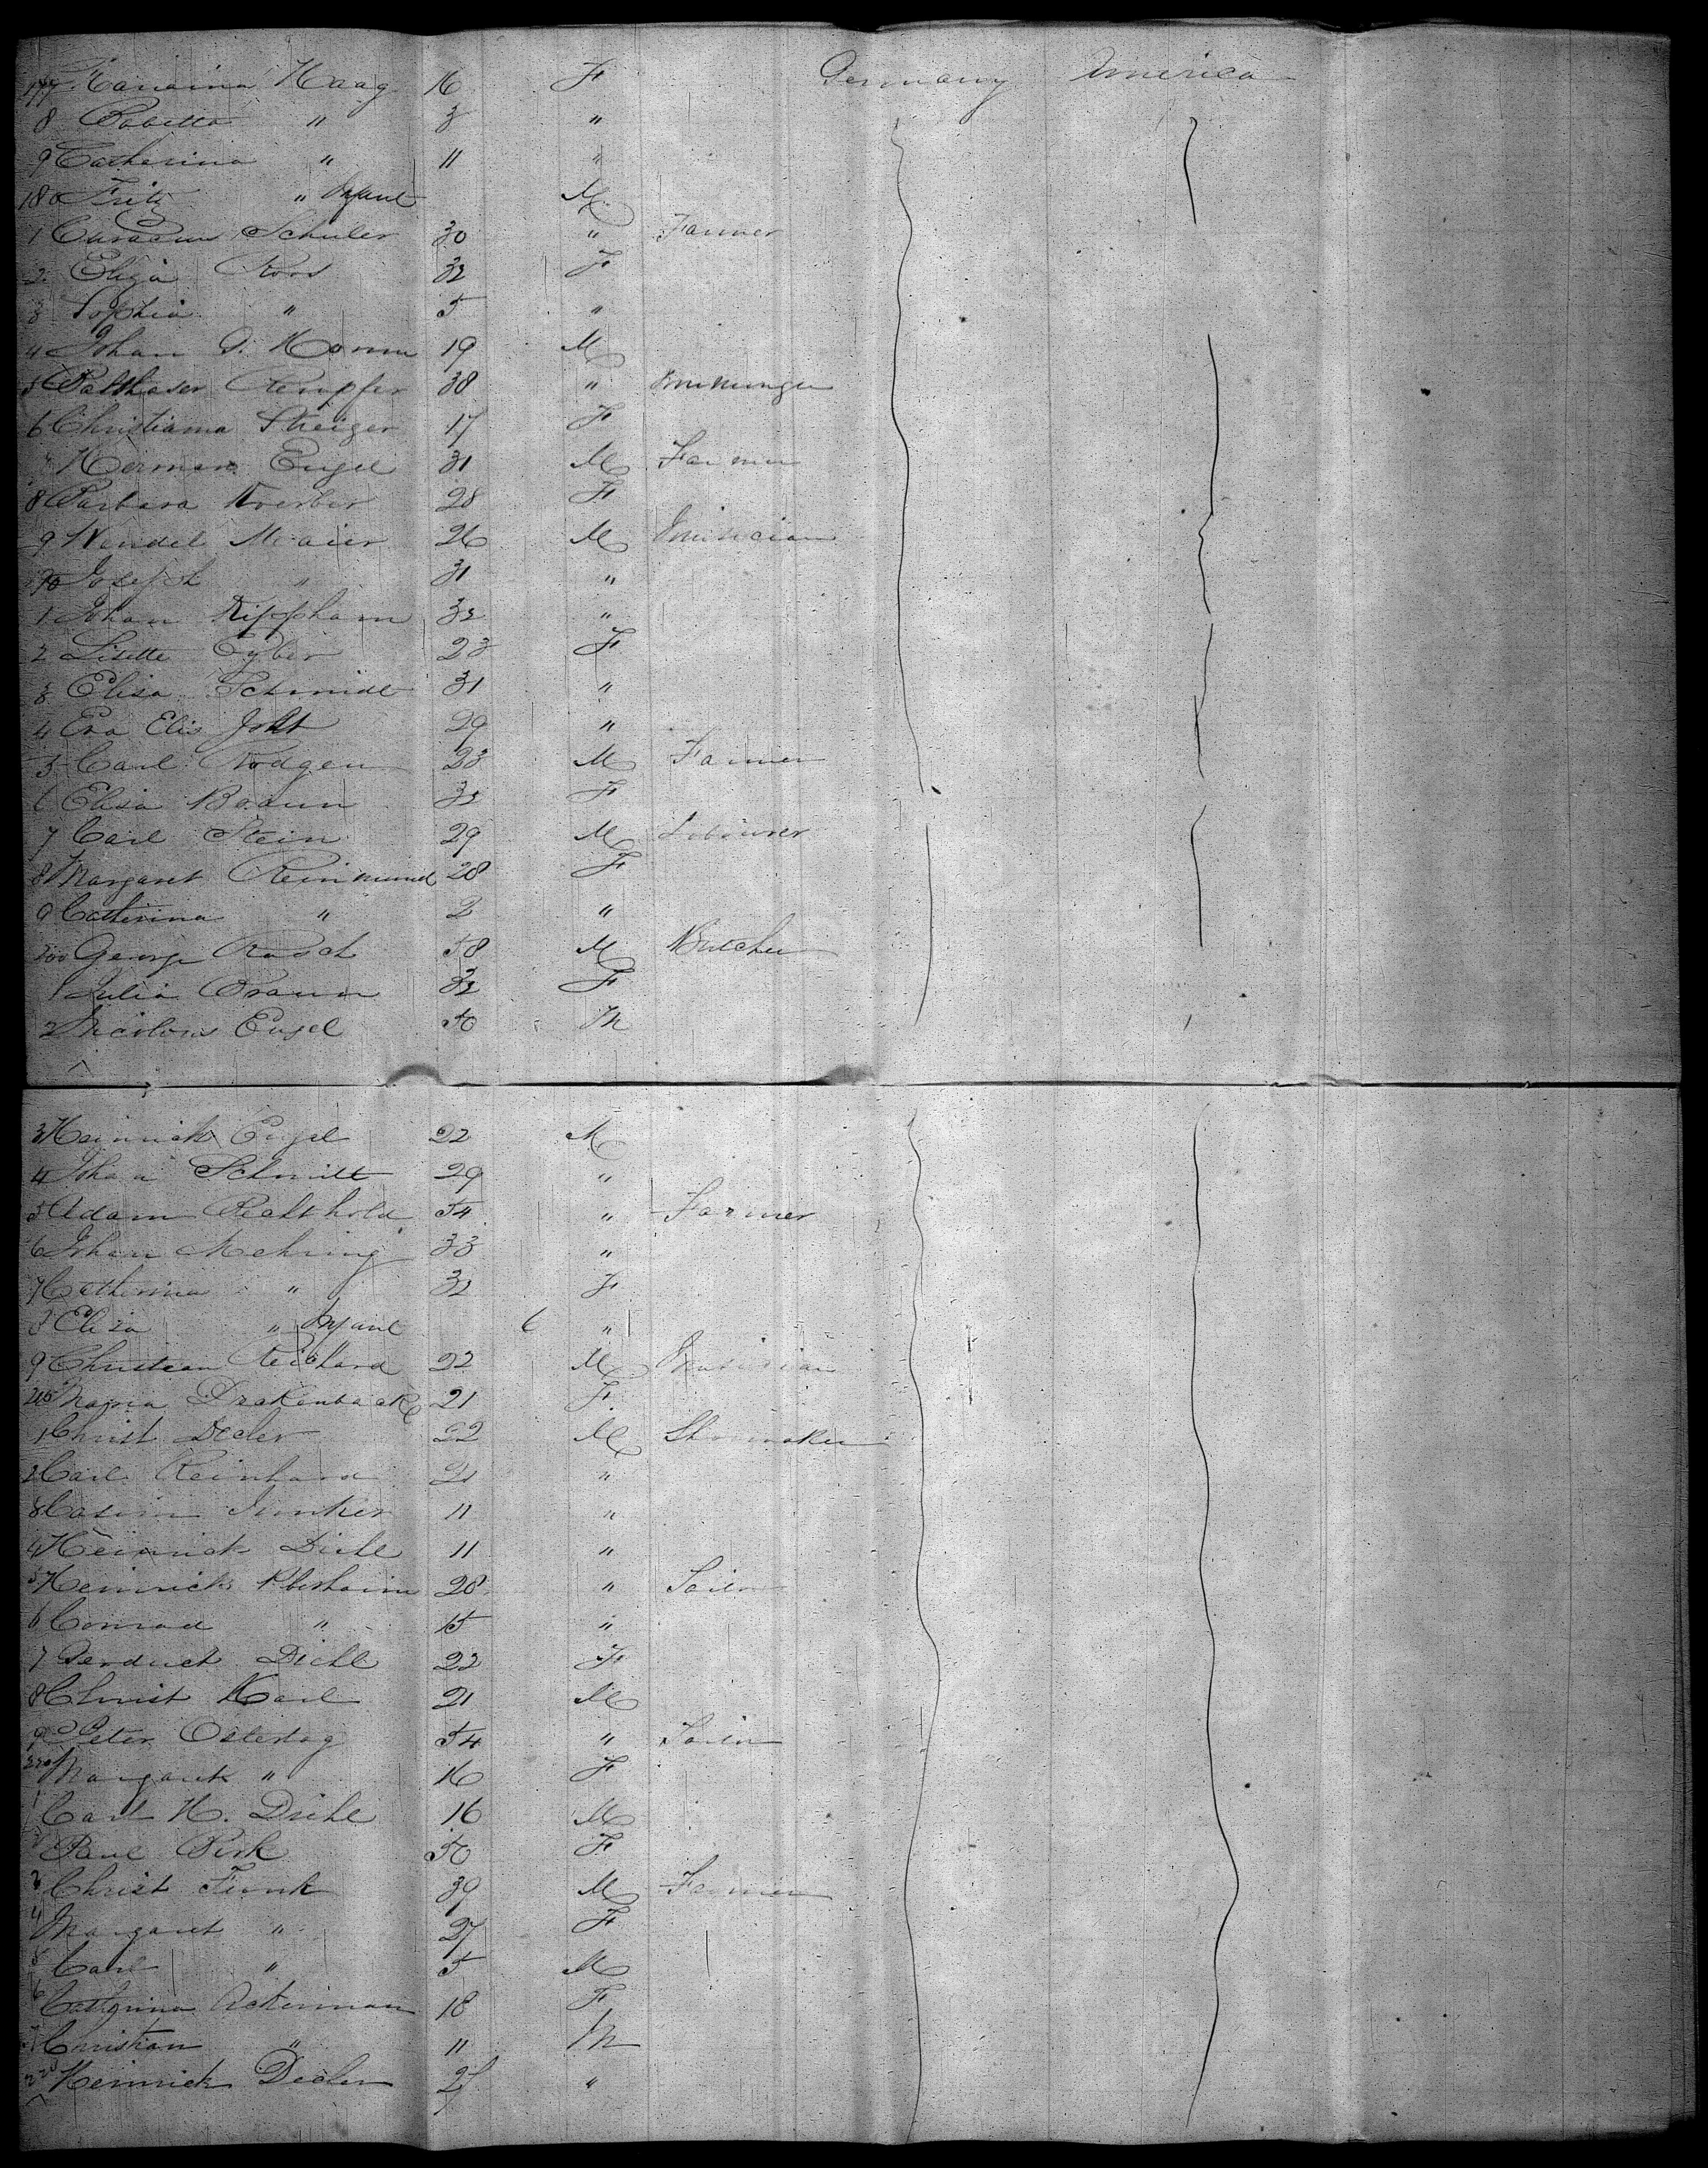 177 Haag 16 F Germany America
8 Babetta " 3 "
9 Catherina " 11 "
180 Fritz " Infant M
1 Schuler 30 " Farmer
2 Roos 32 F
3 Sophia " 5 "
4 Johan 19 M
5 Balthaser Kempfer 38 "
6 Christiana Steiger 17 F
7 Herman Engel 31 M Farmer
8 Barbara Koerber 28 F
9 Wendel Maier 26 M Musician
190 Joseph " 31 "
1 Johan 32 "
2 Lisette Eyber 23 F
3 Elisa Schmidt 31 "
4 Eva Elis 29 "
5 Carl 23 M Farmer
6 Elisa Braun 32 F
7 Carl Stein 29 M Labourer
8 Margaret Reinmund 28 F
9 Catherina " 2 "
200 George Rasch 58 M Butcher
1 Julia Braun 32 F
2 Engel 50 M
3 Heinrich Engel 22 M
4 Johan Schmitt 29 "
5 Adam 54 " Farmer
6 Johan Mehring 33 "
7 Catherina " 32 F
8 Eliza " Infant 6 "
9 Christian Reichhard 22 M Musician
210 Maria Drakenback 21 F
1 Christ Decler 22 M Shoemaker
2 Carl Reinhard 21 "
3 Casim Junker 11 "
4 Heinrich Diehl 11 "
5 Heinrich 28 "
6 Conrad " 15 "
7 Diehl 22 F
8 Christ Karl 21 M
9 Peter Ostertag 54 "
220 Margareth " 16 F
1 Carl H. Diehl 16 M
2 50 F
3 Christ Funk 39 M Farmer
4 Margaret " 27 F
5 Carl " 5 M
6 Catherina Ackerman 18 F
7 Christian " 11 M
228 Heinrich Decler 27 "